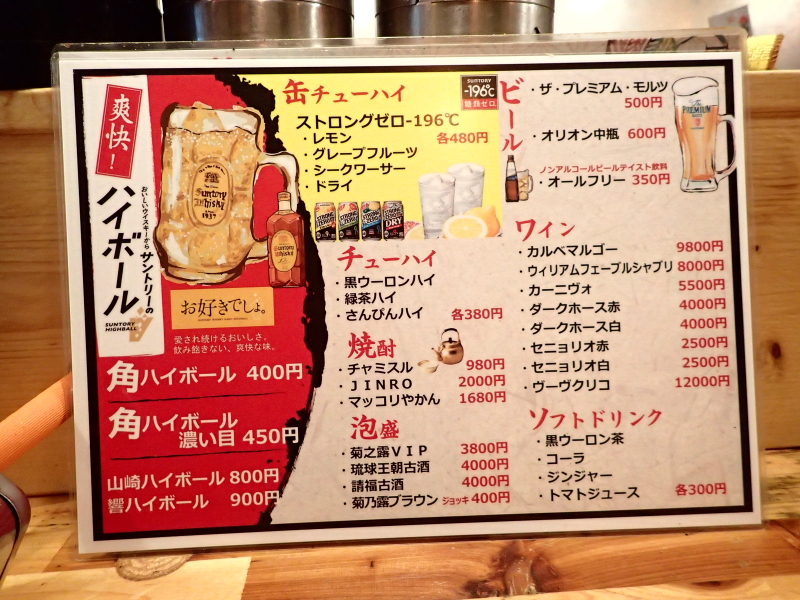 爽快!
おいしいウイスキーから
サントリーの
ハイボール
SUNTORY
HIGHBALL
Suntory
Whisky
1937
お好きでしょ。
愛され続けるおいしさ。
飲み飽きない、爽快な味。
角ハイボール 400円
角ハイボール
濃い目 450円
山崎ハイボール 800円
響ハイボール 900円
缶チューハイ
SUNTORY
-196℃
糖類ゼロ
ストロングゼロ-196℃
・レモン 各480円
・グレープフルーツ
・シークワーサー
・ドライ
チューハイ
・黒ウーロンハイ
・緑茶ハイ
・さんぴんハイ 各380円
焼酎
・チャミスル 980円
・JINRO 2000円
・マッコリやかん 1680円
泡盛
・菊之露VIP 3800円
・琉球王朝古酒 4000円
・請福古酒 4000円
・菊乃露ブラウン ジョッキ 400円
ビール
・ザ・プレミアム・モルツ
500円
・オリオン中瓶 600円
ノンアルコールビールテイスト飲料
・オールフリー 350円
PREMIUM
ワイン
・カルベマルゴー 9800円
・ウィリアムフェーブルシャブリ 8000円
・カーニヴォ 5500円
・ダークホース赤 4000円
・ダークホース白 4000円
・セニョリオ赤 2500円
・セニョリオ白 2500円
・ヴーヴクリコ 12000円
ソフトドリンク
・黒ウーロン茶
・コーラ
・ジンジャー
・トマトジュース 各300円